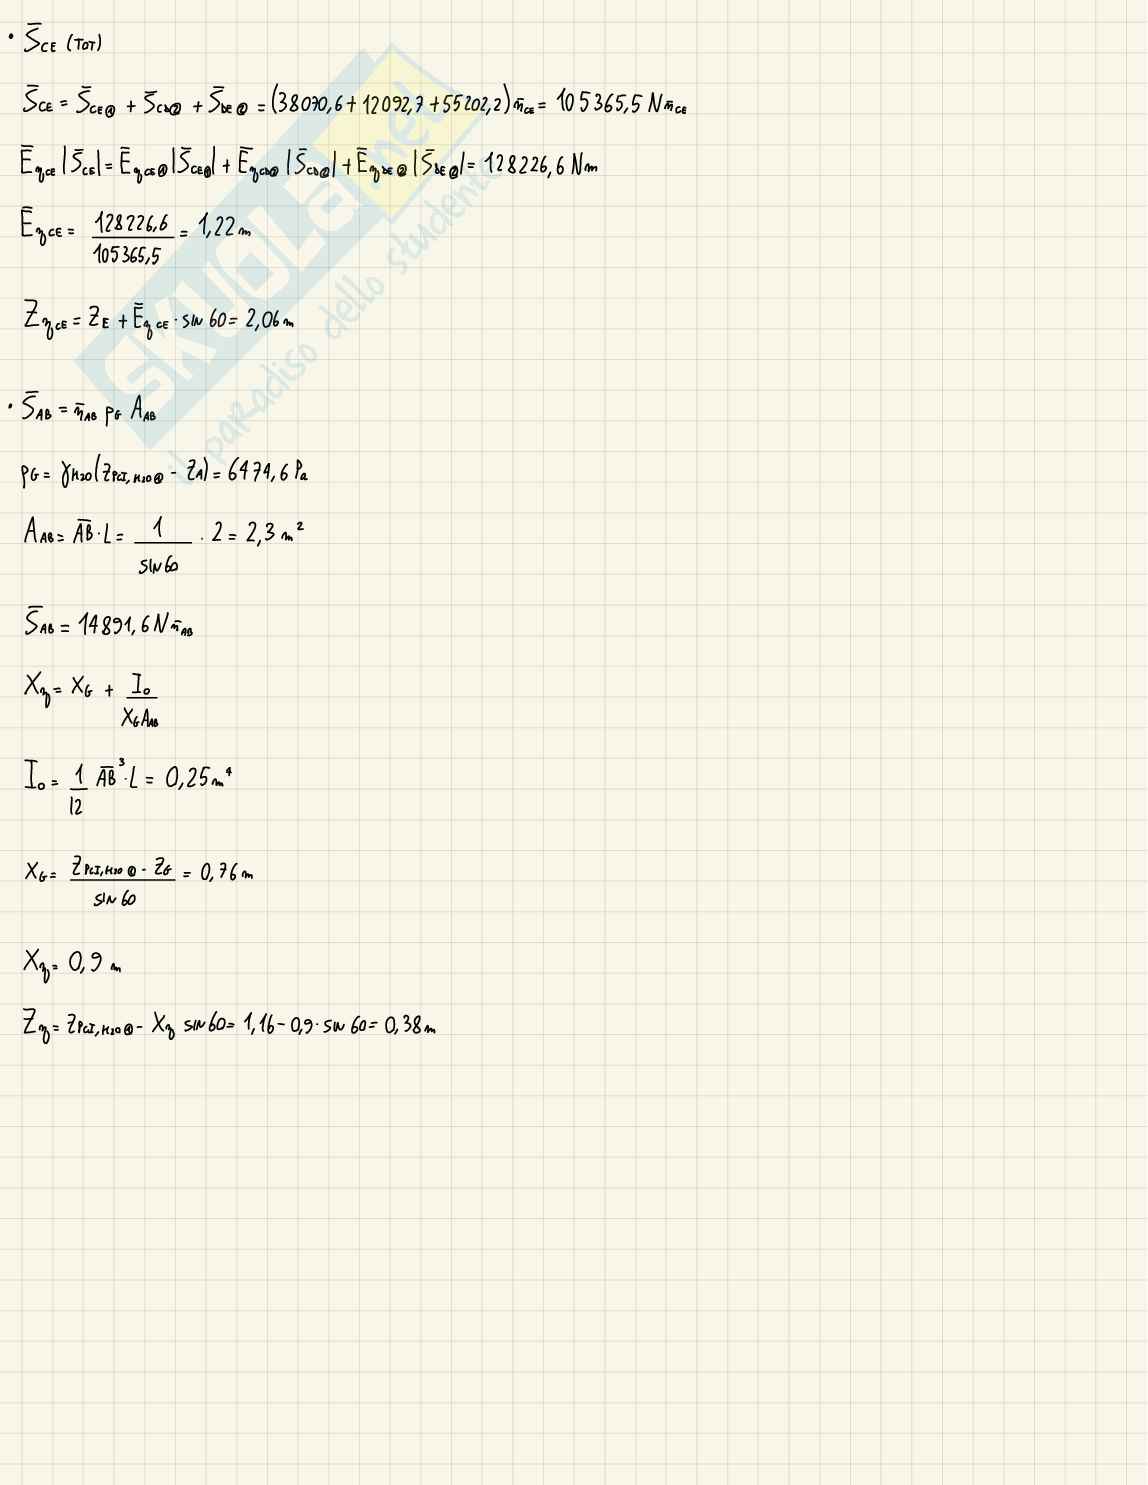 • S̄CE (TOT)
S̄CE = S̄CE① + S̄CD② + S̄DE② = (38070,6 + 12092,7 + 55202,2) n̄CE = 105365,5 N n̄CE
ĒηCE |S̄CE| = ĒηCE① |S̄CE①| + ĒηCD② |S̄CD②| + ĒηDE② |S̄DE②| = 128226,6 Nm
ĒηCE = 128226,6 / 105365,5 = 1,22 m
ZηCE = ZE + ĒηCE · sin 60 = 2,06 m
• S̄AB = n̄AB pG AAB
pG = γH2O (ZPCI,H2O① - ZA) = 6474,6 Pa
AAB = A̅B̅ · L = 1 / sin 60 · 2 = 2,3 m²
S̄AB = 14891,6 N n̄AB
Xη = XG + I₀ / XG AAB
I₀ = 1/12 A̅B̅³ · L = 0,25 m⁴
XG = ZPCI,H2O① - ZG / sin 60 = 0,76 m
Xη = 0,9 m
Zη = ZPCI,H2O① - Xη sin 60 = 1,16 - 0,9 · sin 60 = 0,38 m
SKUOLA.net
il paradiso dello studente